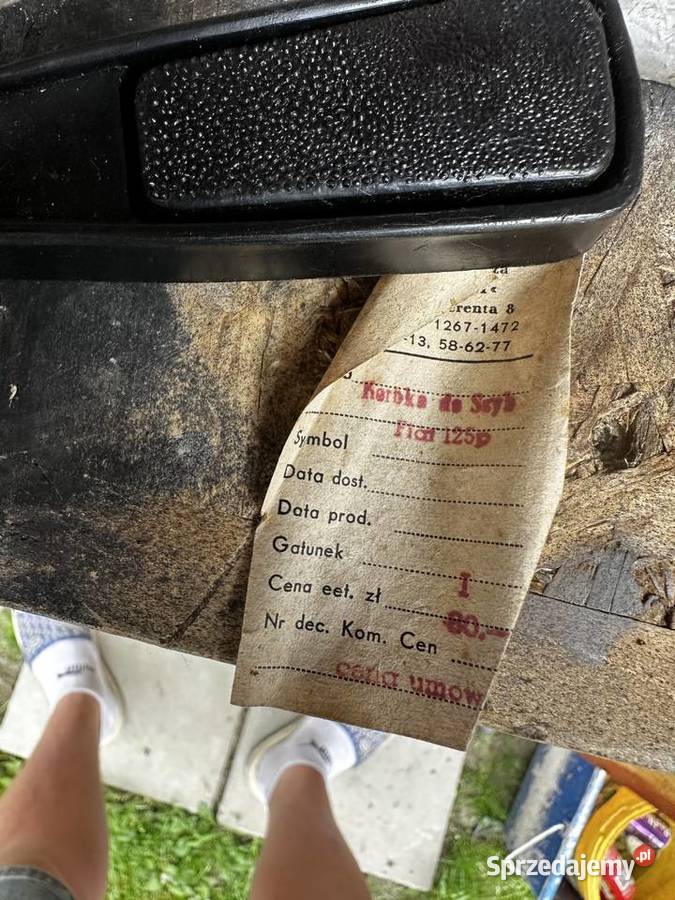 za
erenta 8
1267-1472
-13, 58-62-77
Korbka do Szyb
Fiat 125p
Symbol
Data dost.
Data prod.
Gatunek I
Cena eet. zł 80.—
Nr dec. Kom. Cen
cena umow
Sprzedajemy.pl